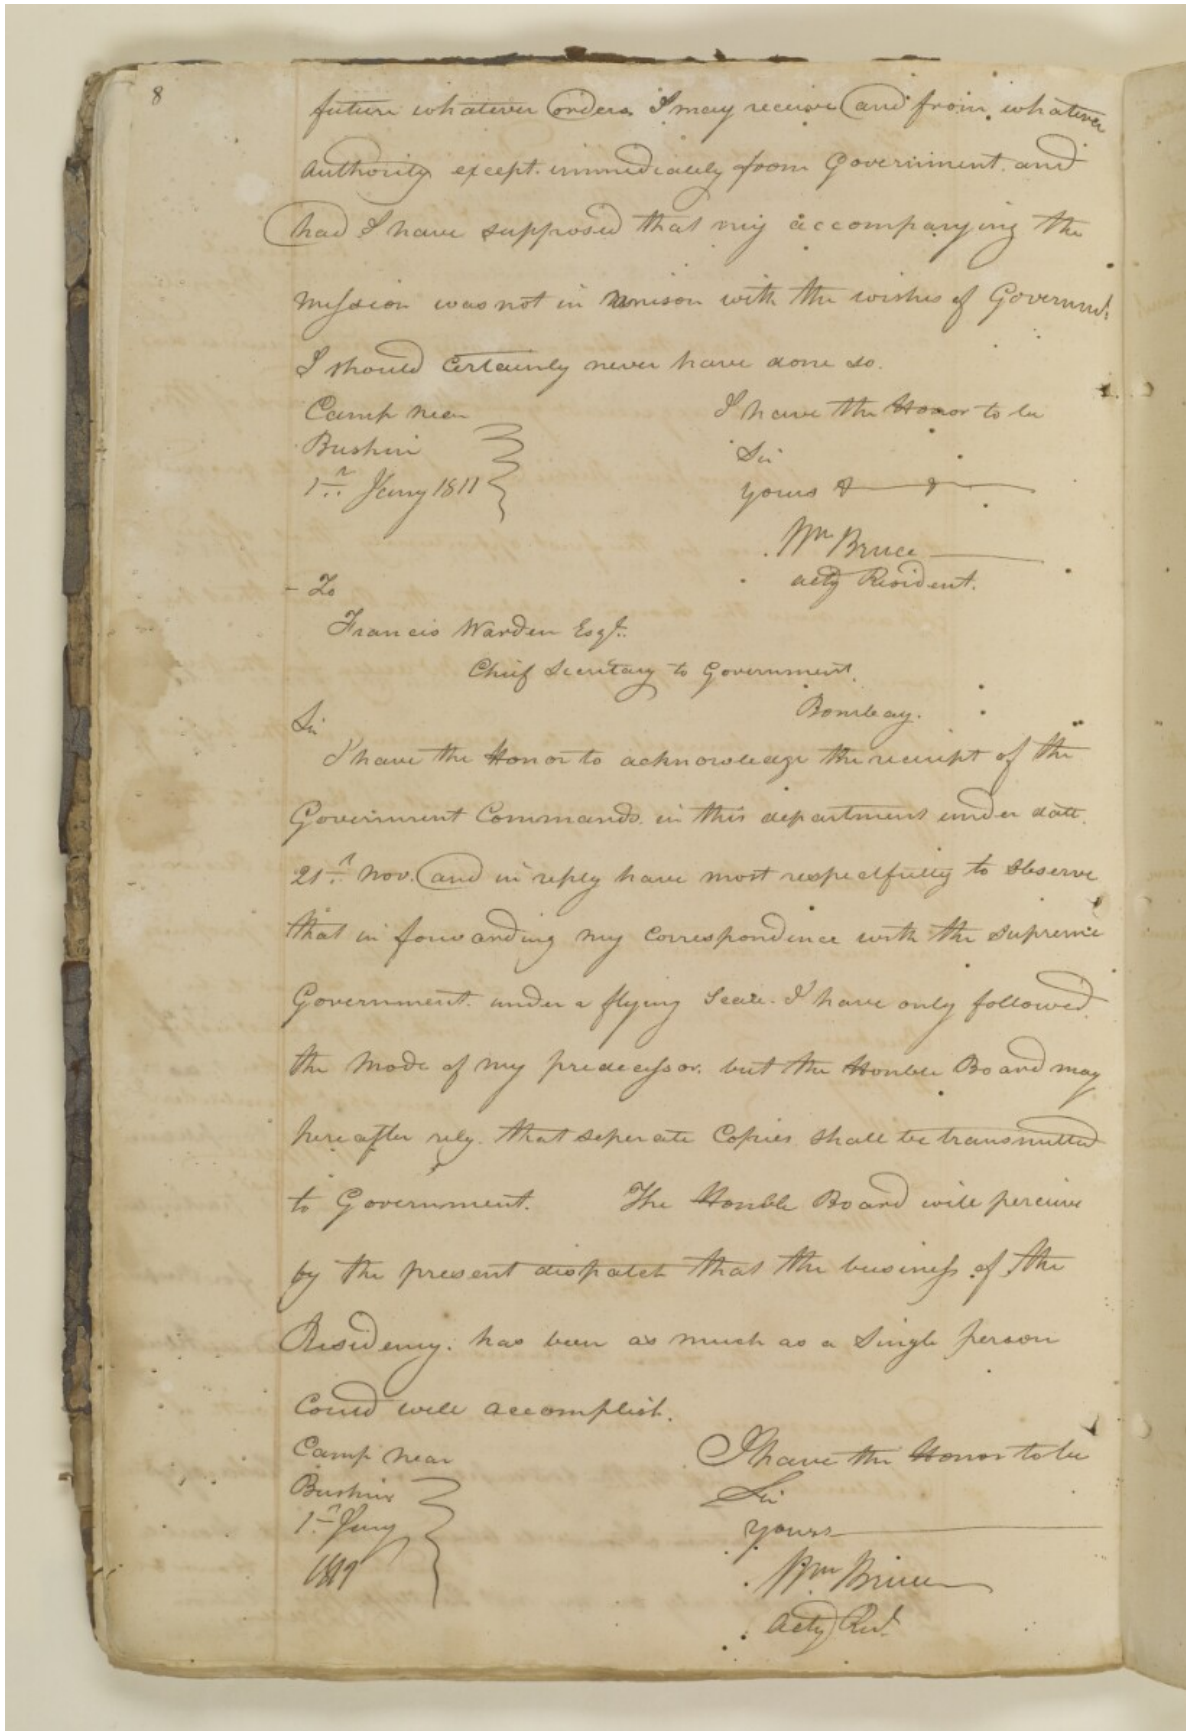 8
future whatever orders I may receive and from whatever
authority except immediately from Government and
had I have supposed that my accompanying the
mission was not in unison with the wishes of Governmt
I should certainly never have done so.
Camp near I have the Honor to be
Bushire Sir
1st Jany 1811 yours &
Wm Bruce
actg Resident.
To
Francis Warden Esqr.
Chief Secretary to Government.
Bombay.
Sir
I have the Honor to acknowledge the receipt of the
Government Commands in this department under date
21st Nov. and in reply have most respectfully to observe
that in forwarding my correspondence with the Supreme
Government under a flying Seal. I have only followed
the mode of my predecessor. but the Honble Board may
hereafter rely that seperate Copies shall be transmitted
to Government. The Honble Board will perceive
by the present dispatch that the business of the
Residency. has been as much as a Single person
could well accomplish.
Camp near I have the Honor to be
Bushire Sir
1st Jany yours
Wm Bruce
Actg Resd.